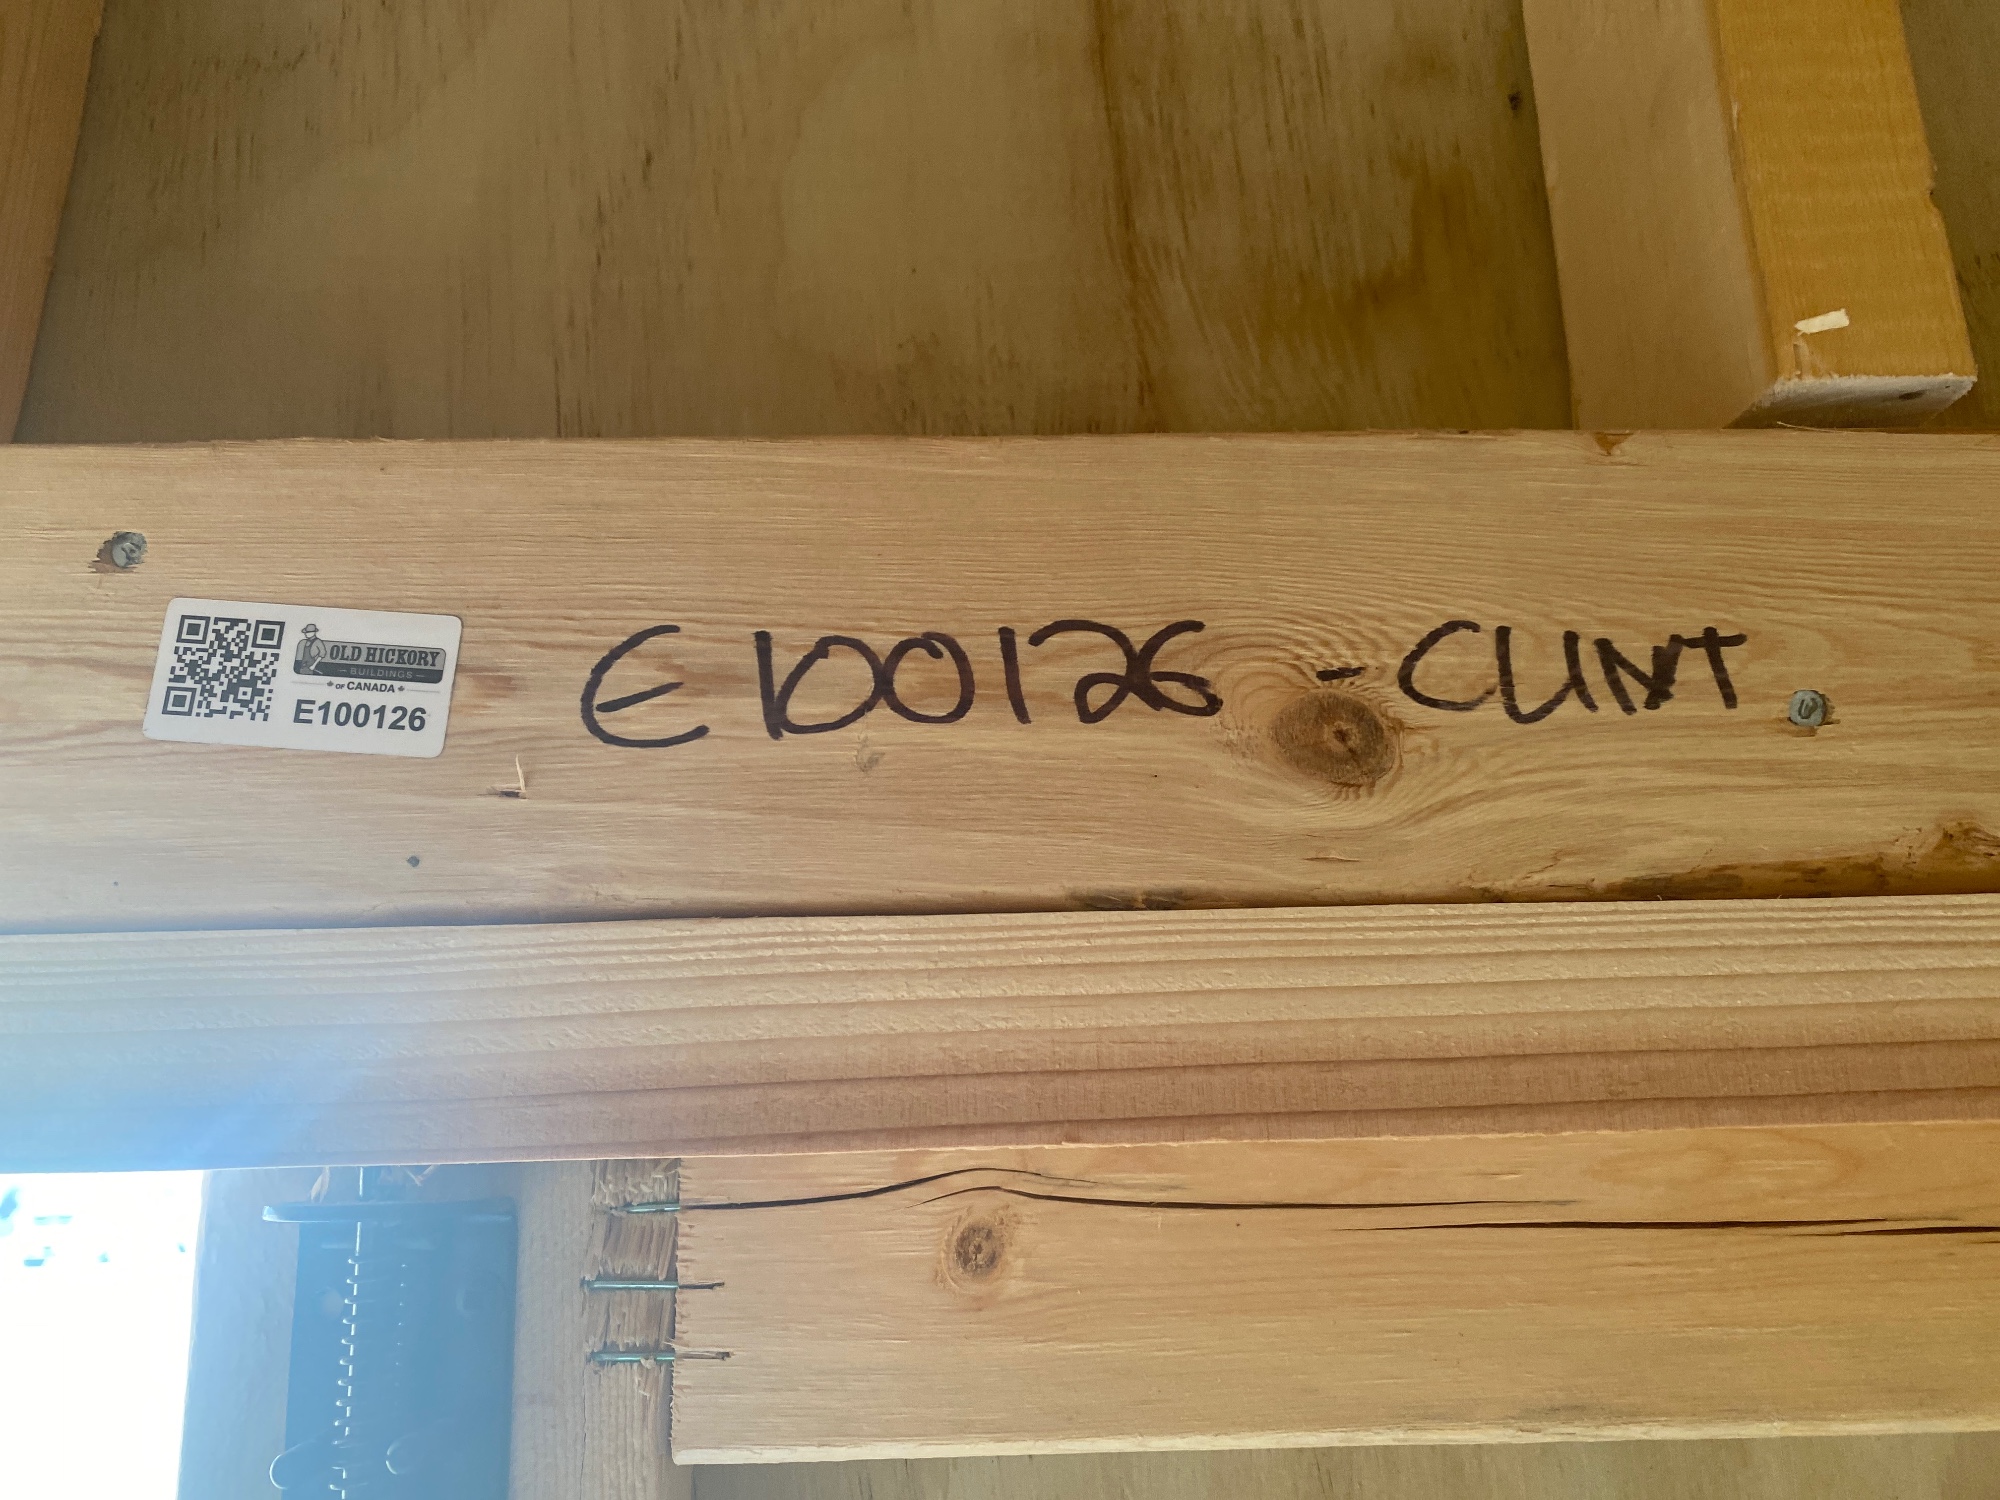 OLD HICKORY
BUILDINGS
OF CANADA
E100126
E100126 - CLINT